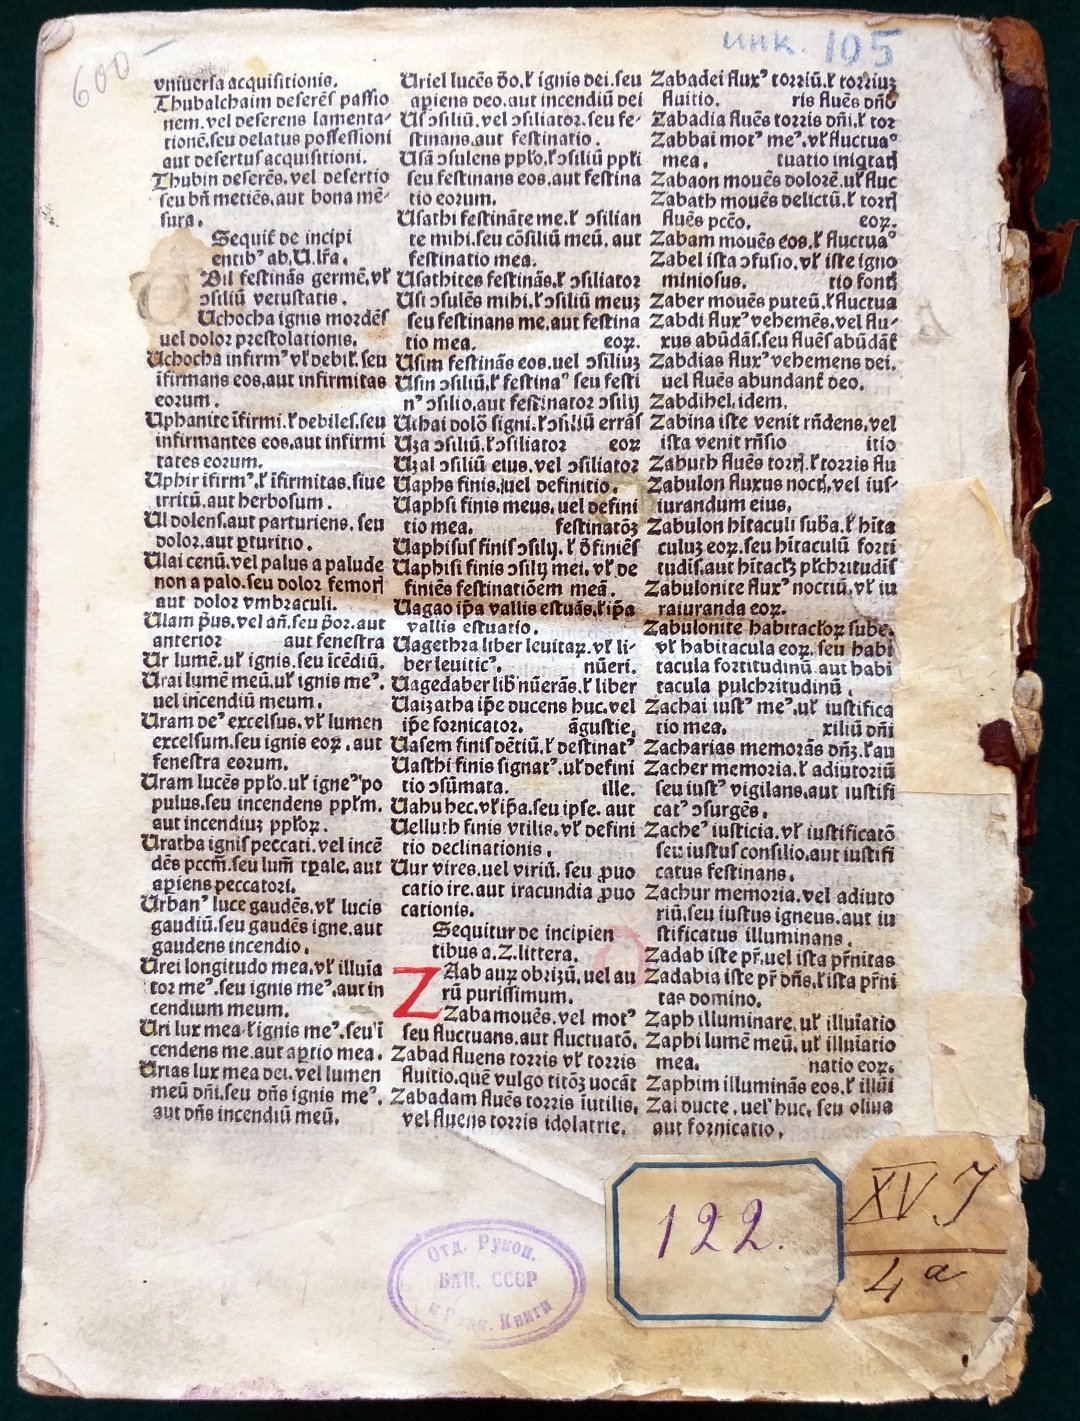 600
инк. 105
vniuersa acquisitionis.
Thubalchaim deserēs passio
nem. vel deserens lamenta-
tionē. seu delatus possessioni
aut desertus acquisitioni.
Thubin deserēs. vel desertio
seu bn̄ metiēs. aut bona mē-
sura.
Sequit̃ de incipi
entibꝰ ab. U. lr̄a.
Bil festinās germē. vł
ɔsiliū vetustatis.
Uchocha ignis mordēs
uel dolor prestolationis.
Uchocha infirmꝰ vł debił. seu
īfirmans eos, aut infirmitas
eorum.
Uphanite īfirmi. ł debiles. seu
infirmantes eos, aut infirmi
tates eorum.
Uphir īfirmꝰ. ł īfirmitas. siue
irritū. aut herbosum.
Ul dolens. aut parturiens. seu
dolor. aut ꝑturitio.
Ulai cenū. vel palus a palude
non a palo. seu dolor femorꝭ
aut dolor vmbraculi.
Ulam p̄us. vel an̄. seu p̄or. aut
anterior aut fenestra
Ur lumē. uł ignis. seu īcēdiū.
Urai lumē meū. uł ignis meꝰ.
uel incendiū meum.
Uram deꝰ excelsus. vł lumen
excelsum. seu ignis eoꝝ. aut
fenestra eorum.
Uram lucēs ppło. uł igneꝰ po
pulus. seu incendens ppłm.
aut incendiuꝫ ppłoꝝ.
Uratha ignis peccati. vel incē
dēs pccm̄. seu lum̄ tꝑale. aut
aꝑiens peccatori.
Urbanꝰ luce gaudēs. vł lucis
gaudiū. seu gaudēs igne. aut
gaudens incendio.
Urei longitudo mea. vł illuīa
tor meꝰ. seu ignis meꝰ. aut in
cendium meum.
Uri lux mea ł ignis meꝰ. seu ī
cendens me. aut aꝑtio mea.
Urias lux mea dei. vel lumen
meū dn̄i. seu dn̄s ignis meꝰ.
aut dn̄s incendiū meū.
Uriel lucēs ðo. ł ignis dei. seu
aꝑiens deo. aut incendiū dei
Us ɔsiliū. vel ɔsiliator. seu fe-
stinans. aut festinatio.
Usā ɔsulens ppło. ł ɔsiliū ppłi
seu festinans eos. aut festina
tio eorum.
Usathi festināte me. ł ɔsilian
te mihi. seu cōsiliū meū. aut
festinatio mea.
Usathites festinās. ł ɔsiliator
Usi ɔsulēs mihi. ł ɔsiliū meuꝫ
seu festinans me. aut festina
tio mea. eoꝝ.
Usim festinās eos. uel ɔsiliuꝫ
Usin ɔsiliū, ł festinaꝰ seu festi
nꝰ ɔsilio. aut festinator ɔsilij
Uthai dolō signi. ł ɔsiliū errās
Uza ɔsiliū. ł ɔsiliator eoꝝ
Uzal ɔsiliū eius. vel ɔsiliator
Uaphs finis. uel definitio.
Uaphsi finis meus. uel defini
tio mea. festinatōꝫ
Uaphisus finis ɔsilij. ł ðfiniēs
Uaphisi finis ɔsilij mei, vł de
finiēs festinatiōem meā.
Uagao ip̄a vallis estuās. ł ip̄a
vallis estuatio.
Uagethra liber leuitaꝝ. vł li-
ber leuiticꝰ. nūeri.
Uagedaber libꝰ nūerās. ł liber
Uaizatha ip̄e ducens huc. vel
ip̄e fornicator. āgustie,
Uasem finis dētiū. ł destinatꝰ
Uasthi finis signatꝰ. uł defini
tio ɔsūmata. ille.
Uahu hec. vł ip̄a. seu ipse. aut
Uelluth finis vtilis. vł defini
tio declinationis.
Uur vires. uel viriū. seu ꝓuo
catio ire. aut iracundia ꝓuo
cationis.
Sequitur de incipien
tibus a. Z. littera.
Z Aab auꝝ obrizū, uel au
rū purissimum.
Zaba mouēs. vel motꝰ
seu fluctuans. aut fluctuatō.
Zabad fluens torris vł torris
fluitio. quē vulgo titōꝫ uocāt
Zabadam fluēs torris īutilis,
vel fluens torris idolatrie.
Zabadei fluxꝰ torriū. ł torriuꝫ
fluitio. ris fluēs dn̄o
Zabadia fluēs torris dn̄i. ł tor
Zabbai motꝰ meꝰ. vł fluctuaº
mea. tuatio iniqtatꝭ
Zabaon mouēs dolorē. uł fluc
Zabath mouēs delictū. ł torrꝭ
fluēs pccō. eoꝝ.
Zabam mouēs eos. ł fluctuaº
Zabel ista ɔfusio. vł iste igno
miniosus. tio fontꝭ
Zaber mouēs puteū. ł fluctua
Zabdi fluxꝰ vehemēs. vel flu-
xus abūdās. seu fluēs abūdāt̃
Zabdias fluxꝰ vehemens dei.
uel fluēs abundant̃ deo.
Zabdihel. idem.
Zabina iste venit rn̄dens, vel
ista venit rn̄sio itio
Zabuth fluēs torrꝭ. ł torris flu
Zabulon fluxus noctꝭ, vel ius-
iurandum eius.
Zabulon hītaculi sub̄a. ł hīta
culuꝫ eoꝝ. seu hītaculū forti
tudīs. aut hītacłꝫ płchritudīs
Zabulonite fluxꝰ noctiū. vł iu
raiuranda eoꝝ.
Zabulonite habitacłoꝝ sube.
vł habitacula eoꝝ. seu habi
tacula fortitudinū aut habi
tacula pulchritudinū.
Zachai iustꝰ meꝰ. uł iustifica
tio mea. xiliū dn̄i
Zacharias memorās dn̄ꝫ. ł au
Zacher memoria. ł adiutoriū
seu iustꝰ vigilans. aut iustifi
catꝰ ɔsurgēs.
Zacheꝰ iusticia. vł iustificatō
seu iustus consilio. aut iustifi
catus festinans.
Zachur memoria. vel adiuto
riū. seu iustus igneus. aut iu
stificatus illuminans.
Zadab iste pr̄. uel ista pr̄nitas
Zadabia iste pr̄ dn̄s. ł ista pr̄ni
tas domino.
Zaph illuminare, uł illuīatio
Zaphi lumē meū. uł illuīatio
mea. natio eoꝝ.
Zaphim illuminās eos. ł illūi
Zai ducte. uel huc, seu oliua
aut fornicatio.
122.
XV J
4 a
Отд. Рукоп.
БАН. СССР
и Редк. Книги